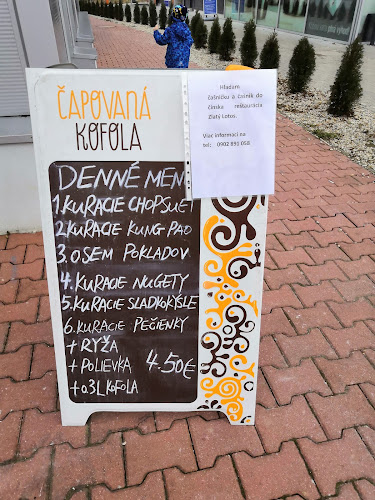 ČAPOVANÁ
KOFOLA
Hľadám
čašníčku a čašník do
čínska reštaurácia
Zlatý Lotos.
Viac informaci na
tel: 0902 891 058
DENNÉ MEN
1. KURACIE CHOPSUEY
2. KURACIE KUNG PAO
3. OSEM POKLADOV
4. KURACIE NUGETY
5. KURACIE SLADKOKYSLE
6. KURACIE PEČIENKY
+ RYŽA
+ POLIEVKA 4.50€
+ 0.3L KOFOLA